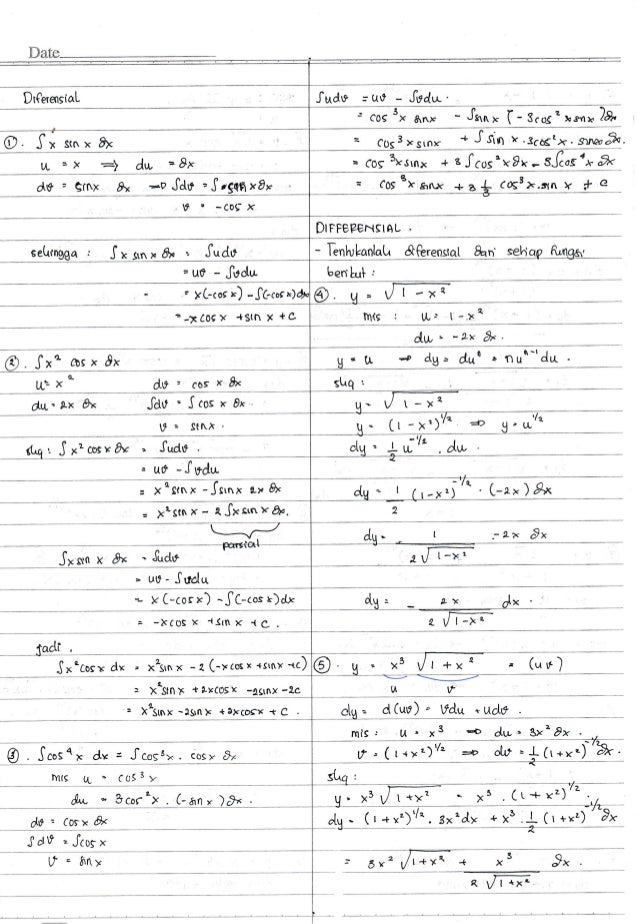 Date
Diferensial
①. ∫x sin x dx
u = x ⟹ du = dx
dv = sinx dx → ∫dv = ∫ sin x dx
v = -cos x
sehingga : ∫x sin x dx = ∫udv
= uv - ∫vdu
= x(-cos x) - ∫(-cos x)dx
= -x cos x + sin x + C
②. ∫x² cos x dx
u = x² dv = cos x dx
du = 2x dx ∫dv = ∫cos x dx
v = sinx.
shg : ∫x² cos x dx = ∫udv.
= uv - ∫vdu
= x² sin x - ∫sinx 2x dx
= x² sin x - 2 ∫x sin x dx.
parsial
∫x sin x dx = ∫udv
= uv - ∫vdu
= x(-cosx) - ∫(-cos x)dx
= -xcos x + sin x + C.
jadi,
∫x²cosx dx = x²sin x - 2(-xcosx + sinx + C)
= x²sinx + 2xcosx - 2sinx - 2C
= x²sinx - 2sinx + 2xcosx + C.
③. ∫cos⁴x dx = ∫cos³x. cosx dx
mis u = cos³x
du = 3cos²x. (-sinx)dx.
dv = cosx dx
∫dv = ∫cos x
v = sin x
∫udv = uv - ∫vdu.
= cos³x sinx - ∫sin x (-3cos²x sinx)dx
= cos³x sinx + ∫sin x. 3cos²x. sinx dx.
= cos³x sinx + 3∫cos²x dx - 3∫cos⁴x dx
= cos³x sinx + 3 1/3 cos³x. sin x + C
DIFFERENSIAL.
- Tentukanlah diferensial dari setiap fungsi
berikut :
④. y = √1-x²
mis : u = 1-x²
du = -2x dx.
y = u → dy = duⁿ = nuⁿ⁻¹du.
shg :
y = √1-x²
y = (1-x²)^1/2 ⟹ y = u^1/2
dy = 1/2 u^-1/2 . du.
dy = 1/2 (1-x²)^-1/2 . (-2x)dx
dy = 1/2√1-x² . -2x dx
dy = - 2x/2√1-x² dx.
⑤. y = x³ √1+x² = (uv)
u v
dy = d(uv) = vdu + udv.
mis : u = x³ ⟹ du = 3x² dx.
v = (1+x²)^1/2 ⟹ dv = 1/2 (1+x²)^-1/2 dx.
shg :
y = x³ √1+x² = x³. (1+x²)^1/2.
dy = (1+x²)^1/2. 3x²dx + x³. 1/2 (1+x²)^-1/2 dx
= 3x² √1+x² + x³/2√1+x² dx.